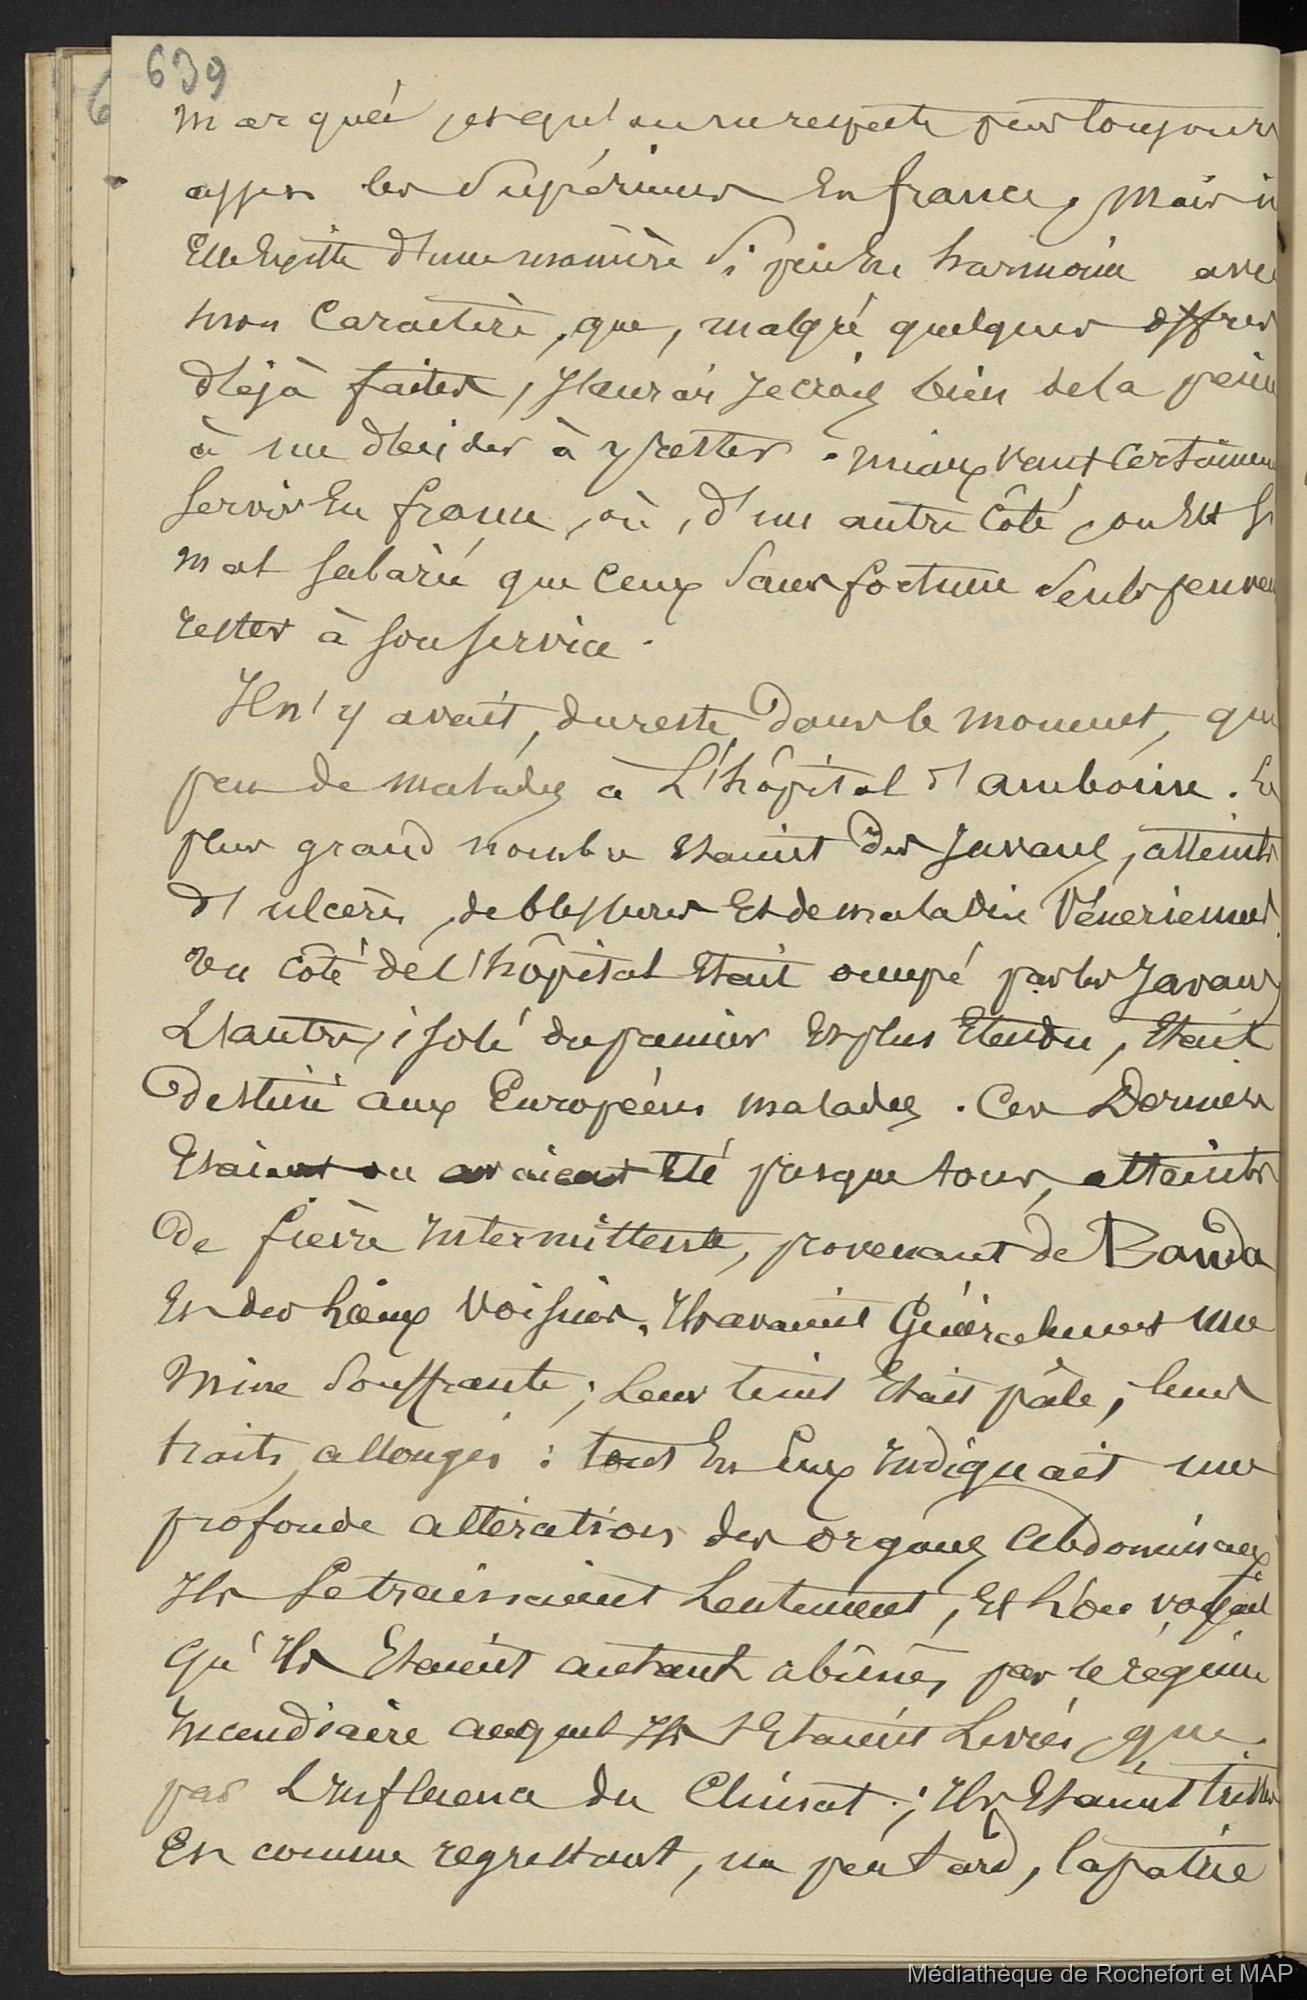 639
marquée, et qu'on ne respecte pas toujours
assez les Supérieurs En france, mais i
Elle Existe d'une manière Si peu En harmonie avec
mon Caractère, que, malgré quelques offres
déjà faites, J'aurai Je crois bien de la peine
à me décider à y rester. mieux vaut Certainement
Servir En france, où, d'un autre Côté, on Est Si
mal Salarié que Ceux Sans fortune Seuls peuvent
rester à Son Service.
Il n'y avait, du reste, Dans le moment, que
peu de malades à L'hôpital d'amboine. Le
plus grand nombre Etaient Des Javans, atteints
d'ulcères, de blessures Et de maladies Vénériennes.
Un Côté de l'hôpital Etait occupé par les Javans,
L'autre, isolé du premier Et plus Etendu, Etait
Destiné aux Européens malades. Ces Derniers
Etaient ou avaient Eté presque tous, atteints
De fièvre Intermittente, provenant de Banda
Et des Lieux Voisins. Ils avaient Généralement une
Mine Souffrante; Leur teint Etait pâle, leurs
traits allongés : tout En Eux Indiquait une
profonde altération des organes abdominaux
Ils Se trainaient Lentement, Et L'on voyait
qu'Ils Etaient autant abimés par le régime
Incendiaire auquel Ils S'Etaient Livrés, que
par L'Influence du Climat.; Ils Etaient tristes
Et comme regrettant, un peu tard, la patrie
Médiathèque de Rochefort et MAP